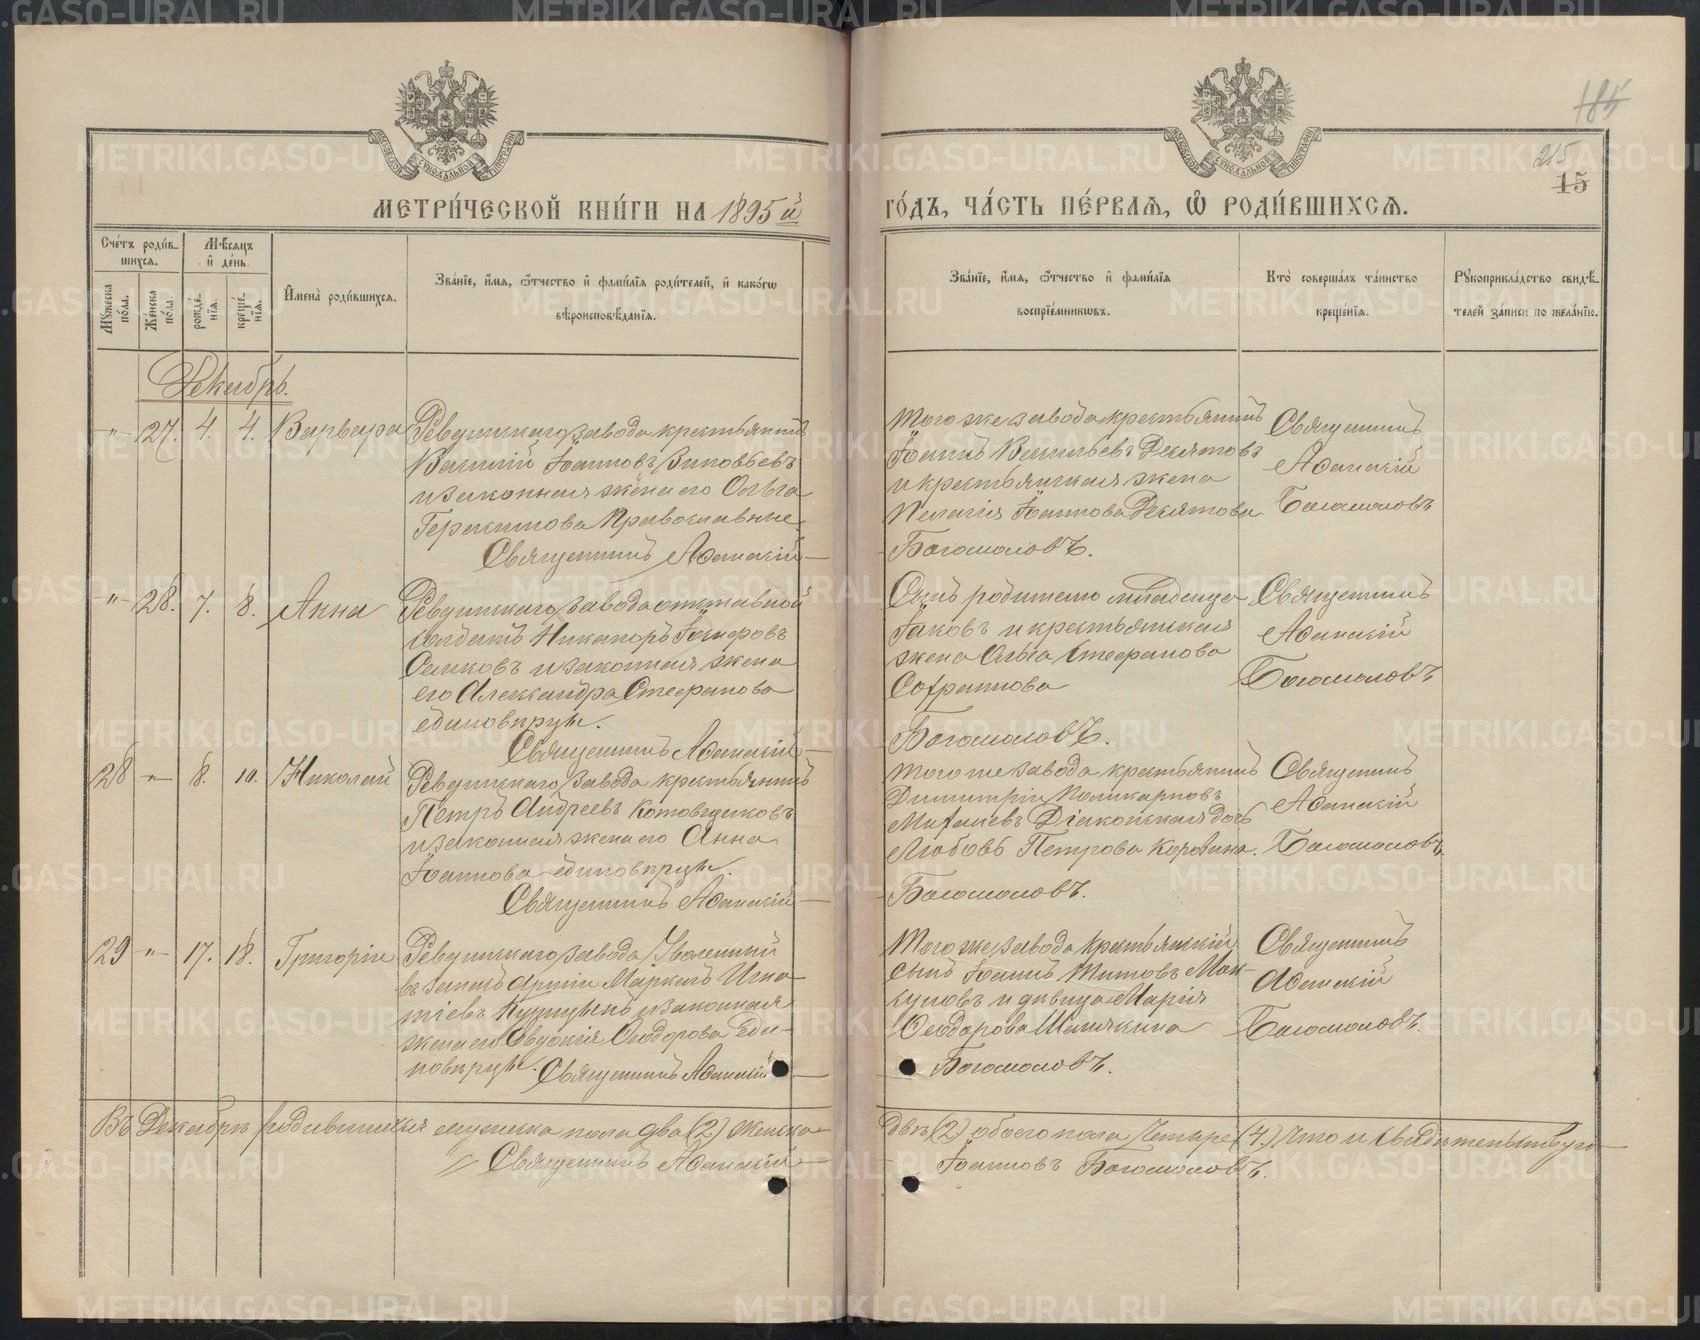 185
215
15
МЕТРИ́ЧЕСКОЙ КНИ́ГИ НА 1895й
ГО́ДЪ, ЧА́СТЬ ПЕ́РВАЯ, Ѡ РОДИ́ВШИХСЯ.
Сче́тъ роди́вшихся.
Мѣ́сяцъ и де́нь.
Му́жеска по́ла.
Же́нска по́ла.
рожде́нїя.
креще́нїя.
И҆мена̀ роди́вшихся.
Зва́нїе, и҆́мя, ѻ҆́тчество и҆ фами́лїя роди́телей, и҆ како́гѡ
вѣроисповѣ́данїя.
Зва́нїе, и҆́мя, ѻ҆́тчество и҆ фами́лїя
воспрїе́мникѡвъ.
Кто̀ соверша́лъ та́инство
креще́нїя.
Рꙋкоприкла́дство свидѣ́-
телей за́писи по жела́нїю.
Декабрь.
-"- 27. 4. 4. Варвара
Ревдинскаго завода крестьянинъ
Василій Іоанновъ Зиновьевъ
и законная жена его Ольга
Герасимова Православные.
Священникъ Аѳанасій
Того же завода крестьянинъ
Іоаннъ Васильевъ Десятовъ
и крестьянская жена
Пелагія Іоаннова Десятова
Богомоловъ.
Священникъ
Аѳанасій
Богомоловъ
-"- 28. 7. 8. Анна
Ревдинскаго завода отставной
солдатъ Никаноръ
и законная жена
его Александра Стефанова
единовѣрцы.
Священникъ Аѳанасій
Сынъ родителю младенца
Іаковъ и крестьянская
жена Ольга Стефанова
Богомоловъ.
Священникъ
Аѳанасій
Богомоловъ
28 -"- 8. 10. Николай
Ревдинскаго завода крестьянинъ
Петръ Андреевъ Котовщиковъ
и законная жена его Анна
Іоаннова единовѣрцы.
Священникъ Аѳанасій
Того же завода крестьянинъ
Димитрій Поликарповъ
Діаконская дочь
Любовь Петрова Коровина.
Богомоловъ.
Священникъ
Аѳанасій
Богомоловъ.
29 -"- 17. 18. Григорій
Ревдинскаго завода Уволенный
въ запасъ Арміи Маркелъ Игна-
тіевъ и законная
жена его Евдокія Ѳеодорова Еди-
новѣрцы. Священникъ Аѳанасій
Того же завода крестьянскій
сынъ Іоаннъ Титовъ Мок-
и дѣвица Марія
Ѳеодорова
Богомоловъ.
Священникъ
Аѳанасій
Богомоловъ.
Въ Декабрѣ родившихся мужска пола два (2) женска
двѣ (2) обоего пола Четыре (4.) Что и свидѣтельствую
Священникъ Аѳанасій
Іоанновъ Богомоловъ.
METRIKI.GASO-URAL.RU